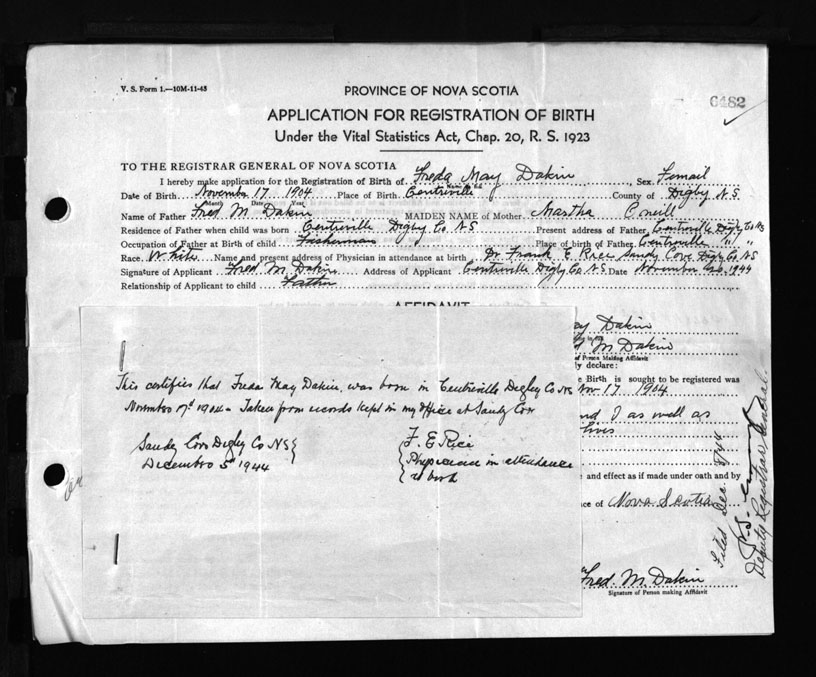 V. S. Form 1.—10M-11-43
PROVINCE OF NOVA SCOTIA
6482
APPLICATION FOR REGISTRATION OF BIRTH
Under the Vital Statistics Act, Chap. 20, R. S. 1923
TO THE REGISTRAR GENERAL OF NOVA SCOTIA
I hereby make application for the Registration of Birth of Freda May Dakin, Sex Femail
Date of Birth November 17 1904 Place of Birth Centreville County of Digby N.S
Month Date Year
Name of Father Fred M. Dakin MAIDEN NAME of Mother Martha
Residence of Father when child was born Centreville Digby Co N.S Present address of Father Centreville Digby Co NS
Occupation of Father at Birth of child Fisherman Place of birth of Father Centreville " "
Race White Name and present address of Physician in attendance at birth Dr Frank E Rice Sandy Cove Digby Co NS
Signature of Applicant Fred M. Dakin Address of Applicant Centreville Digby Co N.S. Date November 1944
Relationship of Applicant to child Father
AFFIDAVIT
ay Dakin
d M Dakin
of Person Making Affidavit
ly declare:
e Birth is sought to be registered was
Nov 17 1904
nd I as well as
lives
e and effect as if made under oath and by
ce of Nova Scotia
Fred. M. Dakin
Signature of Person making Affidavit
This certifies that Freda May Dakin, was born in Centreville Digby Co NS
17d 1904 - Taken from records kept in my office at Sandy Cove
Sandy Cove Digby Co NS
December 5th 1944
F. E Rice
Physician in attendance
at birth
Filed Dec. 8/44
Deputy Registrar General.